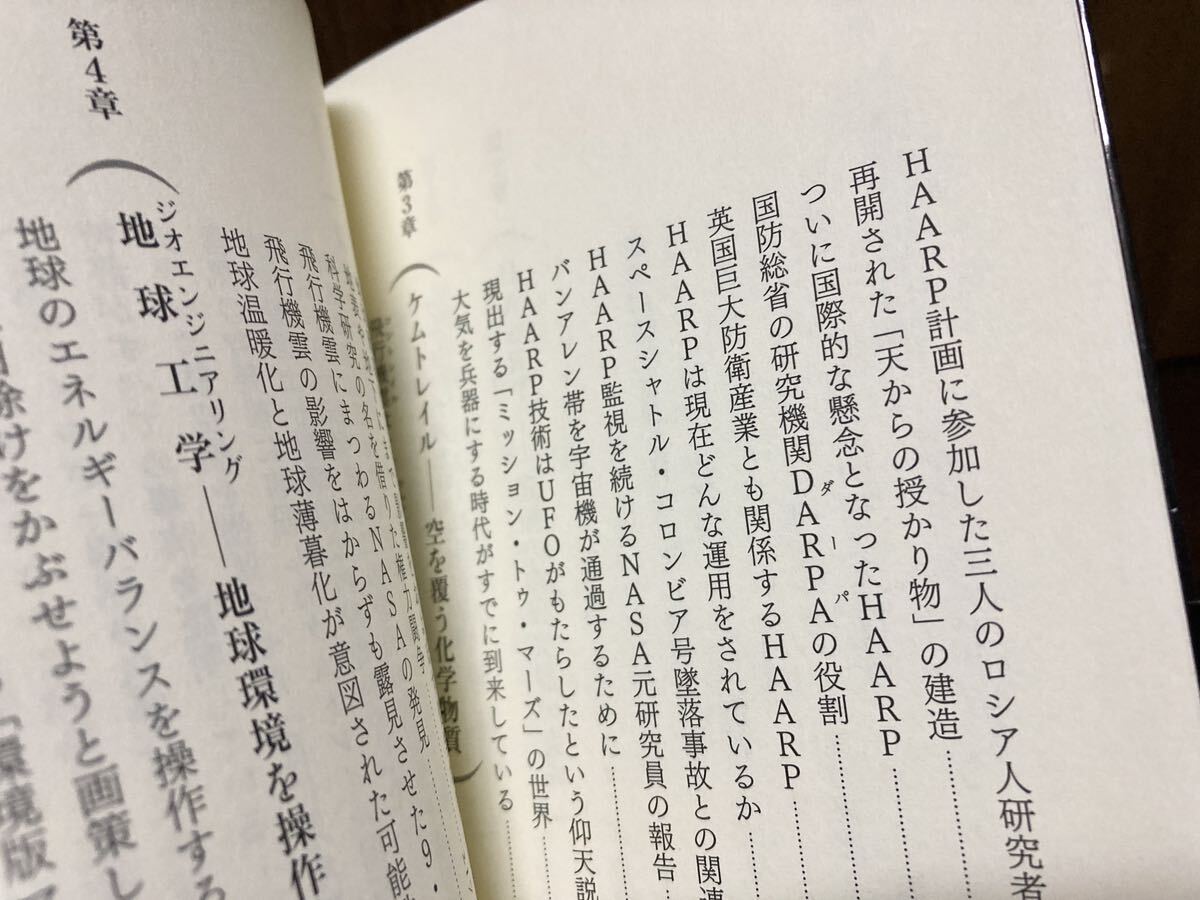 HAARP計画に参加した三人のロシア人研究者
再開された「天からの授かり物」の建造…………
ついに国際的な懸念となったHAARP…………
国防総省の研究機関DARPAの役割…………
ダーパ
英国巨大防衛産業とも関係するHAARP…………
HAARPは現在どんな運用をされているか…………
スペースシャトル・コロンビア号墜落事故との関連
HAARP監視を続けるNASA元研究員の報告…………
バンアレン帯を宇宙機が通過するために…………
HAARP技術はUFOがもたらしたという仰天説
現出する「ミッション・トゥ・マーズ」の世界…………
大気を兵器にする時代がすでに到来している…………
第3章
ケムトレイル――空を覆う化学物質
科学研究の名を借りた権力闘争…………
飛行機雲にまつわるNASAの発見…………
飛行機雲の影響をはからずも露見させた9・
地球温暖化と地球薄暮化が意図された可能
第4章
地球工学――地球環境を操作
ジオエンジニアリング
地球のエネルギーバランスを操作する
除けをかぶせようと画策し
「環境版